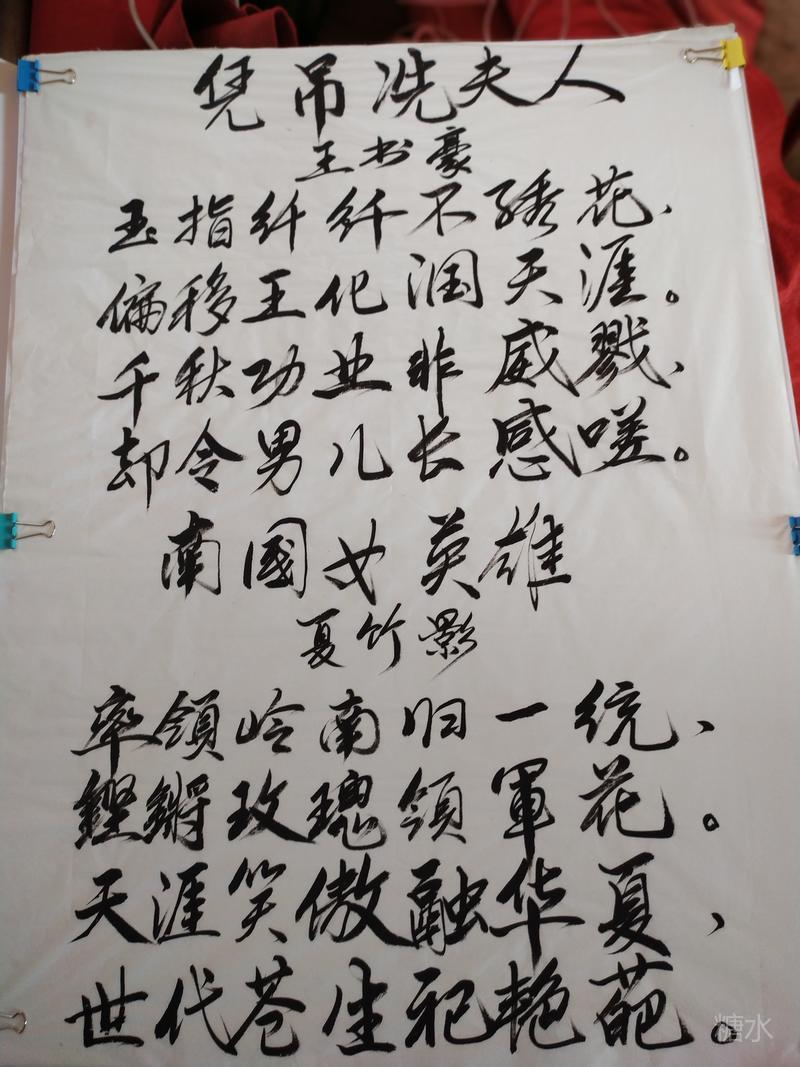 凭吊冼夫人
王书豪
玉指纤纤不绣花、
偏移王化润天涯。
千秋功业非威戮、
却令男儿长感嗟。
南國女英雄
夏竹影
率領岭南归一统、
鏗鏘玫瑰領軍花。
天涯笑傲融华夏，
世代苍生祀艳葩。
糖水